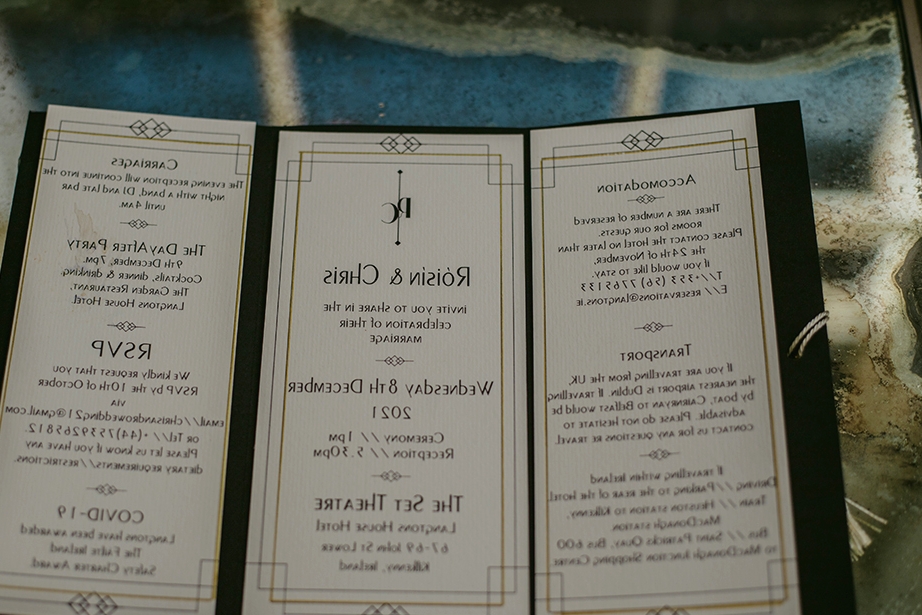 Accomodation
There are a number of reserved
rooms for our guests.
Please contact the hotel no later than
the 24th of November,
if you would like to stay.
T//+353 (56) 7765133
E//reservations@langtons.ie
Transport
If you are travelling from the UK,
the nearest airport is Dublin. If travelling
by boat, Cairnryan to Belfast would be
advisable. Please do not hesitate to
contact us for any questions re.travel.
If travelling within Ireland
Driving // Parking to the rear of the hotel
Train // Heuston station to Kilkenny,
MacDonagh
station
Bus // Saint Patricks Quay, Bus 600
to MacDonagh Junction Shopping Centre
RC
Róisín & Chris
invite you to share in the
celebration of their
marriage
Wednesday 8th December
2021
Ceremony // 1pm
Reception // 5.30pm
The Set Theatre
Langtons House Hotel
67-69 John St Lower
Kilkenny, Ireland.
Carriages
The evening reception will continue into the
night with a band, DJ and late bar
until 4am.
The DayAfter Party
9th December, 7pm.
Cocktails, dinner & drinking
The Garden Restaurant,
Langtons House Hotel.
RSVP
We kindly request that you
RSVP by the 10th of October
via
email//chrisandrowedding21@gmail.com
or Tel// +(44)7539265812.
Please let us know if you have any
dietary requirements//restrictions.
COVID-19
Langtons have been awarded
The Failte Ireland
Safety Charter Award.